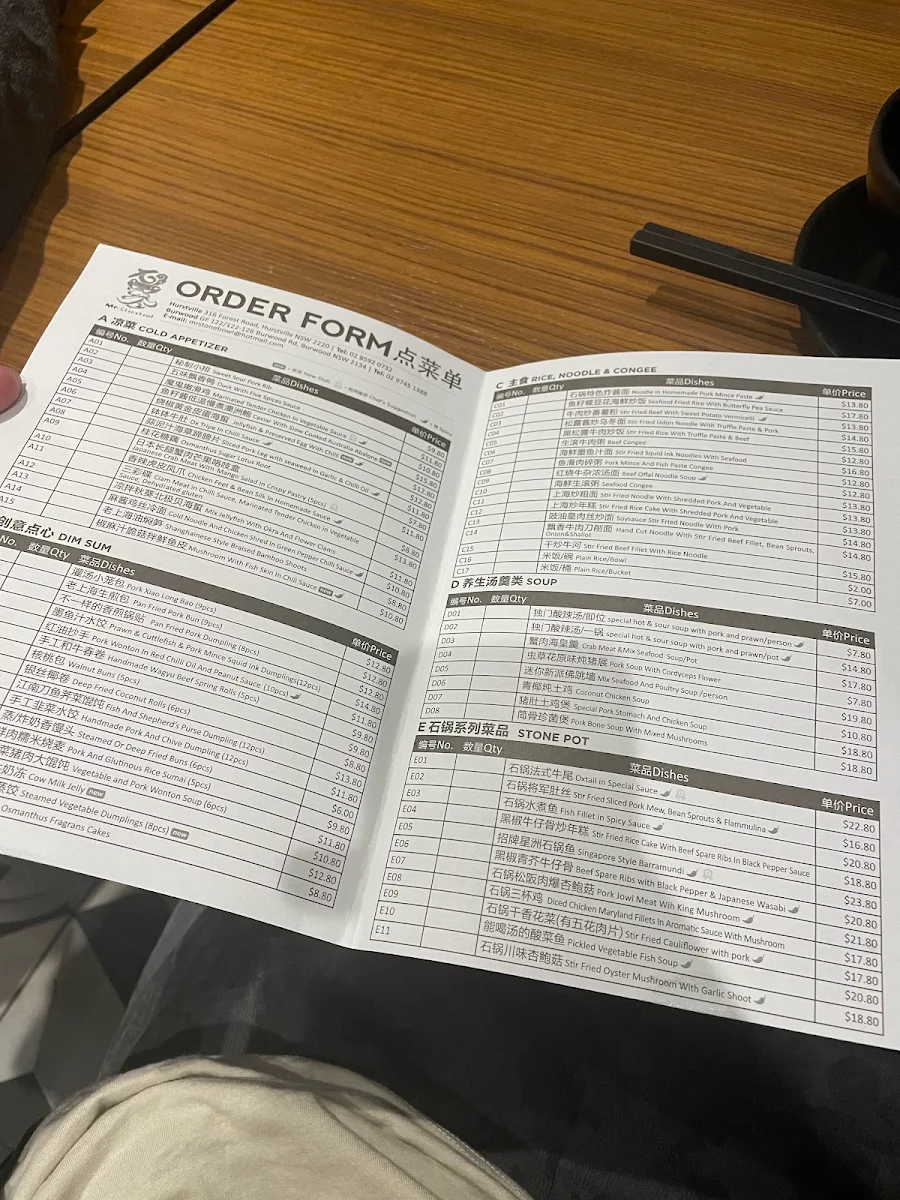 ORDER FORM 点菜单
Hurstville 316 Forest Road, Hurstville NSW 2220 | Tel: 02 8592 0732
Burwood GF 122/122-126 Burwood Rd, Burwood NSW 2134 | Tel: 02 9745 1388
E-mail: mrstonebowl@hotmail.com
A 凉菜 COLD APPETIZER
编号No. 数量Qty 菜品Dishes 单价Price
A01 秘制小排 Sweet Sour Pork Rib $9.80
A02 五味飘香鸭 Duck With Five Spices Sauce
A03 魔鬼嫩滑鸡 Marinated Tender Chicken In Vegetable Sauce
A04
A05
A06
A07
A08 钵钵牛肚 Ox Tripe In Chilli Sauce
A09
桂花糖藕 Osmanthus Sugar Lotus Root
A10 Japanese Crab Meat With Mango Salad In Crispy Pastry (5pcs)
A11
A12
A13
A14
A15
创意点心 DIM SUM
No. 数量Qty 菜品Dishes 单价Price
灌汤小笼包 Pork Xiao Long Bao (9pcs) $12.80
老上海生煎包 Pan Fried Pork Bun (9pcs) $12.80
不一样的香煎锅贴 Pan Fried Pork Dumplings (8pcs) $12.80
墨鱼汁水饺 Prawn & Cuttlefish & Pork Mince Squid Ink Dumplings(12pcs) $14.80
红油抄手 Pork Wonton In Red Chilli Oil And Peanut Sauce (10pcs) $11.80
手工和牛春卷 Handmade Wagyu Beef Spring Rolls (5pcs) $9.80
核桃包 Walnut Buns (5pcs) $9.80
银丝椰卷 Deep Fried Coconut Rolls (6pcs) $8.80
江南刀鱼荠菜馄饨 Fish And Shepherd's Purse Dumpling (12pcs) $13.80
手工韭菜水饺 Handmade Pork And Chive Dumpling (12pcs) $11.80
蒸/炸奶香馒头 Steamed Or Deep Fried Buns (6pcs) $6.00
鲜肉糯米烧麦 Pork And Glutinous Rice Sumai (5pcs) $9.80
菜猪肉大馄饨 Vegetable and Pork Wonton Soup (6pcs) $11.80
牛奶冻 Cow Milk Jelly new $10.80
蒸饺 Steamed Vegetable Dumplings (8pcs) new $12.80
Osmanthus Fragrans Cakes $8.80
C 主食 RICE, NOODLE & CONGEE
编号No. 数量Qty 菜品Dishes 单价Price
C01 石锅特色炸酱面 Noodle in Homemade Pork Mince Paste $13.80
C02 鱼籽蝶豆花海鲜炒饭 Seafood Fried Rice With Butterfly Pea Sauce $17.80
C03 牛肉炒番薯粉 Stir Fried Beef With Sweet Potato Vermicelli $12.80
C04 松露酱炒乌冬面 Stir Fried Udon Noodle With Truffle Paste & Pork $14.80
C05 黑松露牛肉炒饭 Stir Fried Rice With Truffle Paste & Beef $15.80
C06 生滚牛肉粥 Beef Congee $12.80
C07 海鲜墨鱼汁面 Stir Fried Squid Ink Noodles With Seafood $16.80
C08 鱼滑肉碎粥 Pork Mince And Fish Paste Congee $12.80
C09 红烧牛杂浓汤面 Beef Offal Noodle Soup $13.80
C10 海鲜生滚粥 Seafood Congee $12.80
C11 上海炒粗面 Stir Fried Noodle With Shredded Pork And Vegetable $13.80
C12 上海炒年糕 Stir Fried Rice Cake With Shredded Pork And Vegetable $13.80
C13 豉油皇肉丝炒面 Soysauce Stir Fried Noodle With Pork $14.80
C14 飘香牛肉刀削面 Hand Cut Noodle With Stir Fried Beef Fillet, Bean Sprouts, Onion&Shallot $14.80
C15 干炒牛河 Stir Fried Beef Fillet With Rice Noodle $15.80
C16 米饭/碗 Plain Rice/Bowl $2.00
C17 米饭/桶 Plain Rice/Bucket $7.00
D 养生汤羹类 SOUP
编号No. 数量Qty 菜品Dishes 单价Price
D01 独门酸辣汤/即位 special hot & sour soup with pork and prawn/person $7.80
D02 独门酸辣汤/一锅 special hot & sour soup with pork and prawn/pot $14.80
D03 蟹肉海皇羹 Crab Meat &Mix Seafood Soup/Pot $17.80
D04 虫草花原味炖猪展 Pork Soup With Cordyceps Flower $7.80
D05 迷你新派佛跳墙 Mix Seafood And Poultry Soup /person $19.80
D06 青椰炖土鸡 Coconut Chicken Soup $10.80
D07 猪肚土鸡煲 Special Pork Stomach And Chicken Soup $18.80
D08 筒骨珍菌煲 Pork Bone Soup With Mixed Mushrooms $18.80
E 石锅系列菜品 STONE POT
编号No. 数量Qty 菜品Dishes 单价Price
E01 石锅法式牛尾 Oxtail in Special Sauce $22.80
E02 石锅将军肚丝 Stir Fried Sliced Pork Mew, Bean Sprouts & Flammulina $16.80
E03 石锅水煮鱼 Fish Fillet in Spicy Sauce $20.80
E04 黑椒牛仔骨炒年糕 Stir Fried Rice Cake With Beef Spare Ribs In Black Pepper Sauce $18.80
E05 招牌星洲石锅鱼 Singapore Style Barramundi $23.80
E06 黑椒青芥牛仔骨 Beef Spare Ribs with Black Pepper & Japanese Wasabi $20.80
E07 石锅松阪肉爆杏鲍菇 Pork Jowl Meat Wih King Mushroom $21.80
E08 石锅三杯鸡 Diced Chicken Maryland Fillets In Aromatic Sauce With Mushroom $17.80
E09 石锅干香花菜(有五花肉片) Stir Fried Cauliflower with pork $17.80
E10 能喝汤的酸菜鱼 Pickled Vegetable Fish Soup $20.80
E11 石锅川味杏鲍菇 Stir Fried Oyster Mushroom With Garlic Shoot $18.80